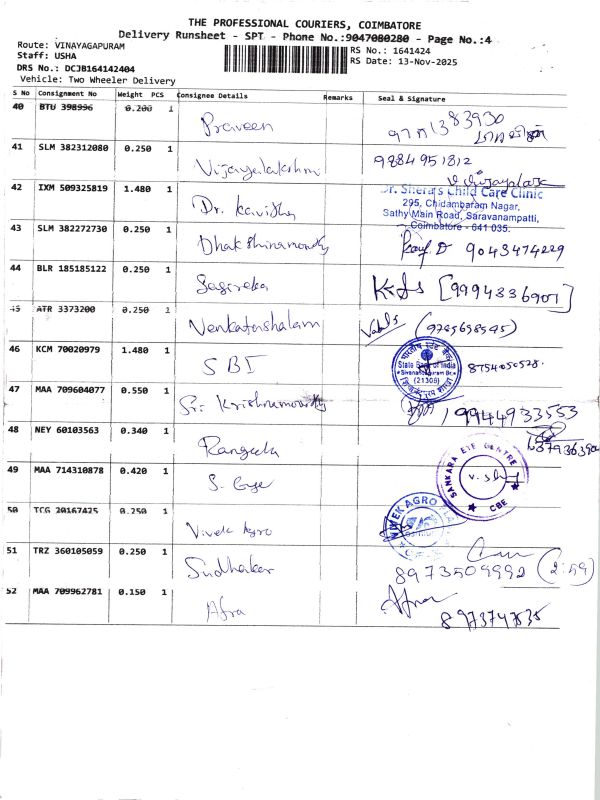 THE PROFESSIONAL COURIERS, COIMBATORE
Delivery Runsheet - SPT - Phone No.:9047080280 - Page No.:4
Route: VINAYAGAPURAM
Staff: USHA
DRS No.: DCJB164142404
Vehicle: Two Wheeler Delivery
RS No.: 1641424
RS Date: 13-Nov-2025
S No Consignment No Weight PCS Consignee Details Remarks Seal & Signature
40 BTU 398996 0.200 1 Praveen
41 SLM 382312080 0.250 1 Vijayalakshmi 9884951812
42 IXM 509325819 1.480 1 Dr. Kavitha
Dr. Shera's Child Care Clinic
295, Chidambaram Nagar,
Sathy Main Road, Saravanampatti,
Coimbatore - 641 035.
43 SLM 382272730 0.250 1 Dhakshinamoorthy 9043474229
44 BLR 185185122 0.250 1 Sasireka [9994336901]
45 ATR 3373200 0.250 1 Venkatashalam
46 KCM 70020979 1.480 1 SBI
State Bank of India
(21306)
47 MAA 709604077 0.550 1 Sri Krishnamoorthy 9944933553
48 NEY 60103563 0.340 1
49 MAA 714310878 0.420 1 S. Eye
SANKARA EYE CENTRE
CBE
50 TCG 20167425 0.250 1 Vivek Agro
VIVEK AGRO
51 TRZ 360105059 0.250 1 Sudhakar
8973509992 (2:59)
52 MAA 709962781 0.150 1 Afra Afra